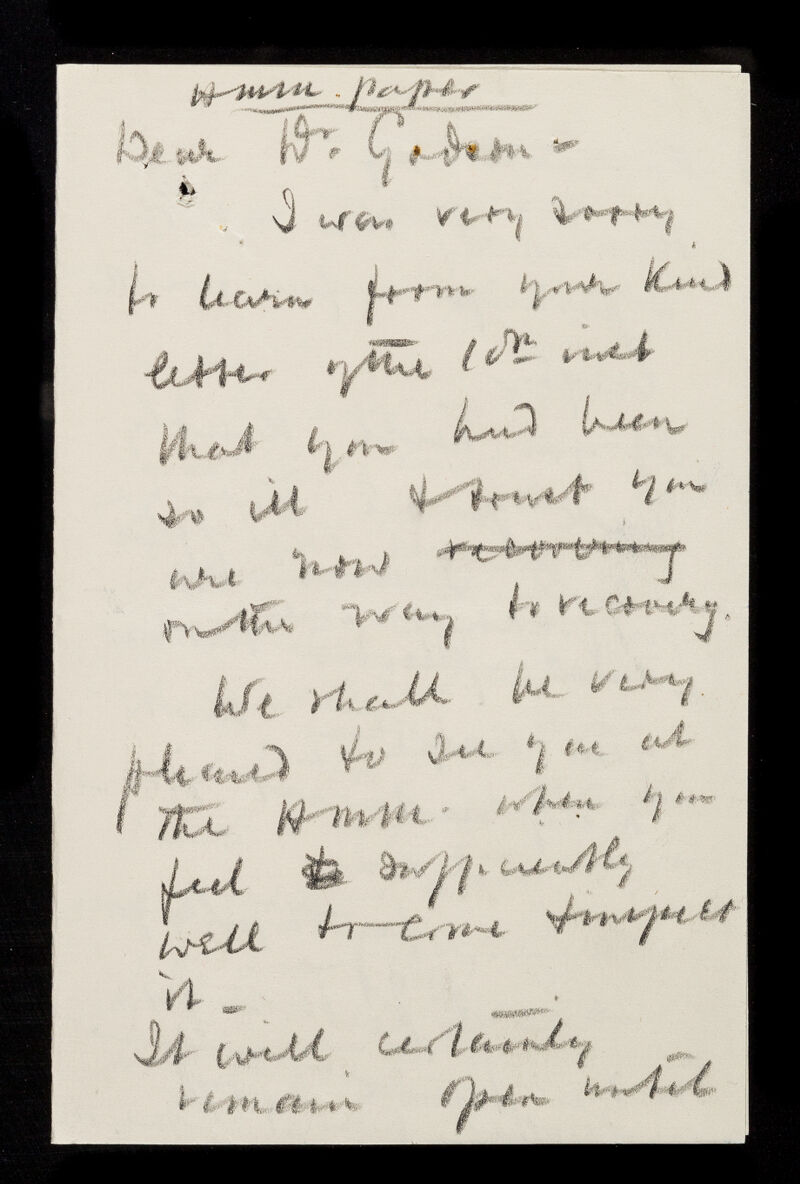 HMM. paper
Dear Dr. Godson -
I was very sorry
to learn from your kind
letter of the 10th inst
that you had been
so ill & trust you
are now recovering
on the way to recovery.
We shall be very
pleased to see you at
the HMM. when you
feel sufficiently
well to come & inspect
it -
It will certainly
remain open until